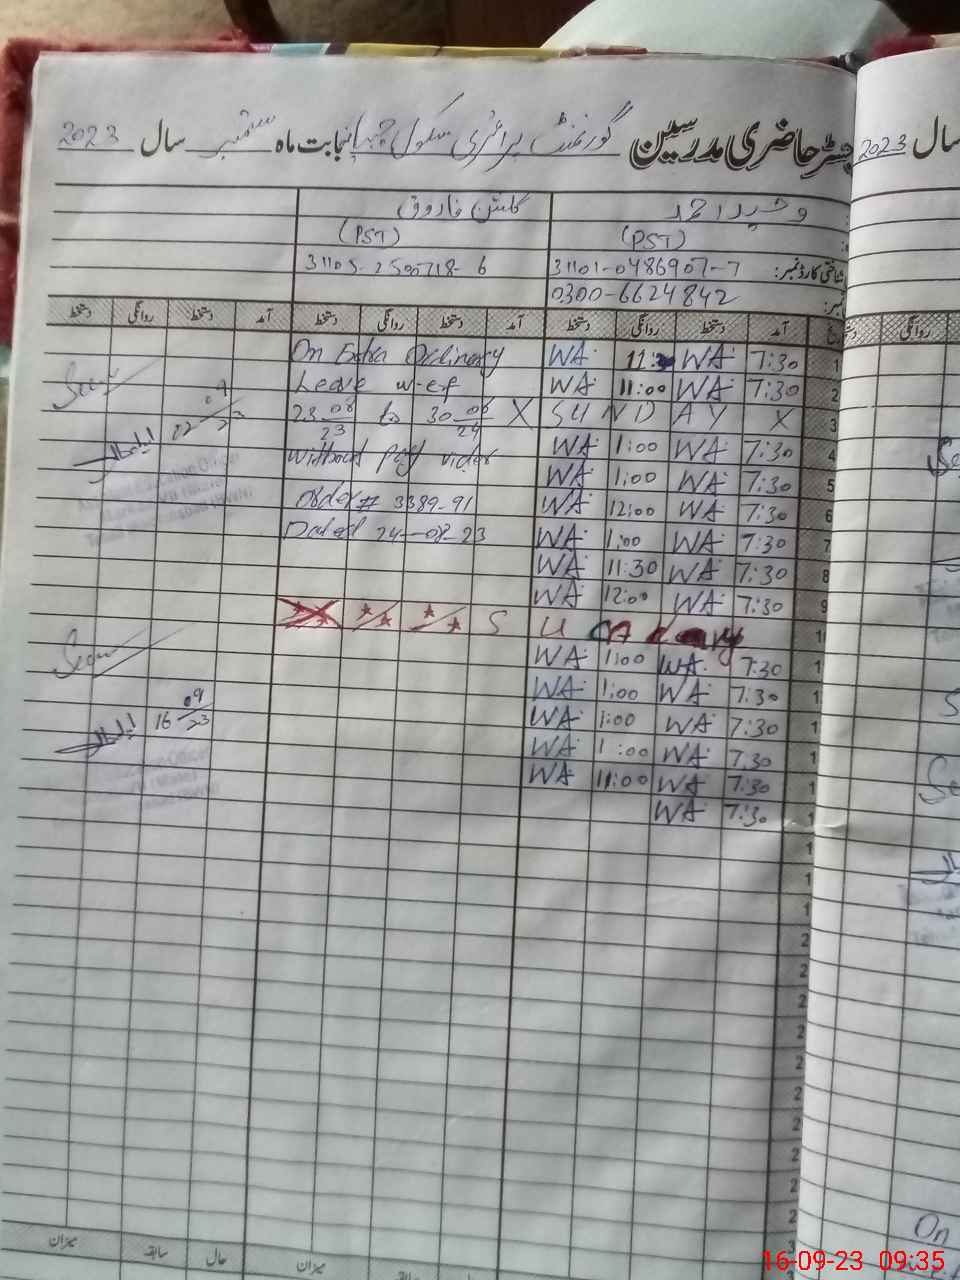 رجسٹر حاضری مدرسین گورنمنٹ پرائمری سکول بابت ماہ ستمبر سال 2023
2023 سال
وحید احمد گلشن فاروق
(PST) (PST)
شناختی کارڈ نمبر: 31101-0486907-7 31105-2500718-6
نمبر: 0300-6624842
آمد دستخط روانگی دستخط آمد دستخط روانگی دستخط آمد دستخط روانگی دستخط
روانگی
On Extra Ordinery WA 11:30 WA 7:30 1
Leave w-e-f WA 11:00 WA 7:30 2
23 08 23 to 30 06 24 X S U N D A Y X 3
without pay vide WA 1:00 WA 7:30 4
WA 1:00 WA 7:30 5
order # 3389-91 WA 12:00 WA 7:30 6
Dated 24-08-23 WA 1:00 WA 7:30 7
WA 11:30 WA 7:30 8
WA 12:00 WA 7:30 9
S U 10
WA 1:00 WA 7:30 1
WA 1:00 WA 7:30 1
WA 1:00 WA 7:30 1
WA 1:00 WA 7:30 1
WA 11:00 WA 7:30 1
WA 7:30 1
1
1
1
2
2
2
2
2
2
2
2
2
2
Seen
02 09 23
Assistant Education Officer
Seen
16 09 23
Education Officer
On
میزان حال سابقہ میزان
16-09-23 09:35